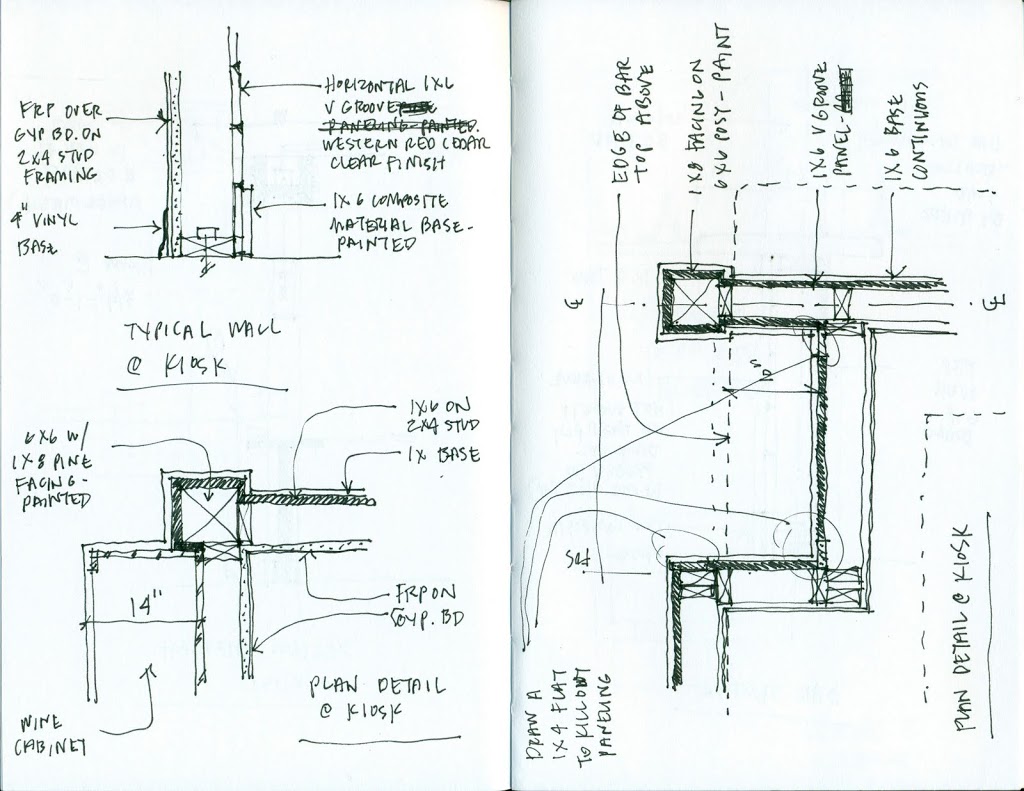 FRP OVER
GYP BD. ON
2X4 STUD
FRAMING
4" VINYL
BASE
HORIZONTAL 1X6
V GROOVE
PANELING - PAINTED.
WESTERN RED CEDAR
CLEAR FINISH
1X6 COMPOSITE
MATERIAL BASE -
PAINTED
TYPICAL WALL
@ KIOSK
6X6 W/
1X8 PINE
FACING -
PAINTED
1X6 ON
2X4 STUD
1X BASE
14"
FRP ON
GYP. BD
WINE
CABINET
PLAN DETAIL
@ KIOSK
EDGE OF BAR
TOP ABOVE
1X8 FACING ON
6X6 POST - PAINT
1X6 V GROOVE
PANEL -
1X6 BASE
CONTINUOUS
CL
CL
10"
FOS
DRAW A
1X4 FLAT
TO KILL OUT
PANELING
PLAN DETAIL @ KIOSK